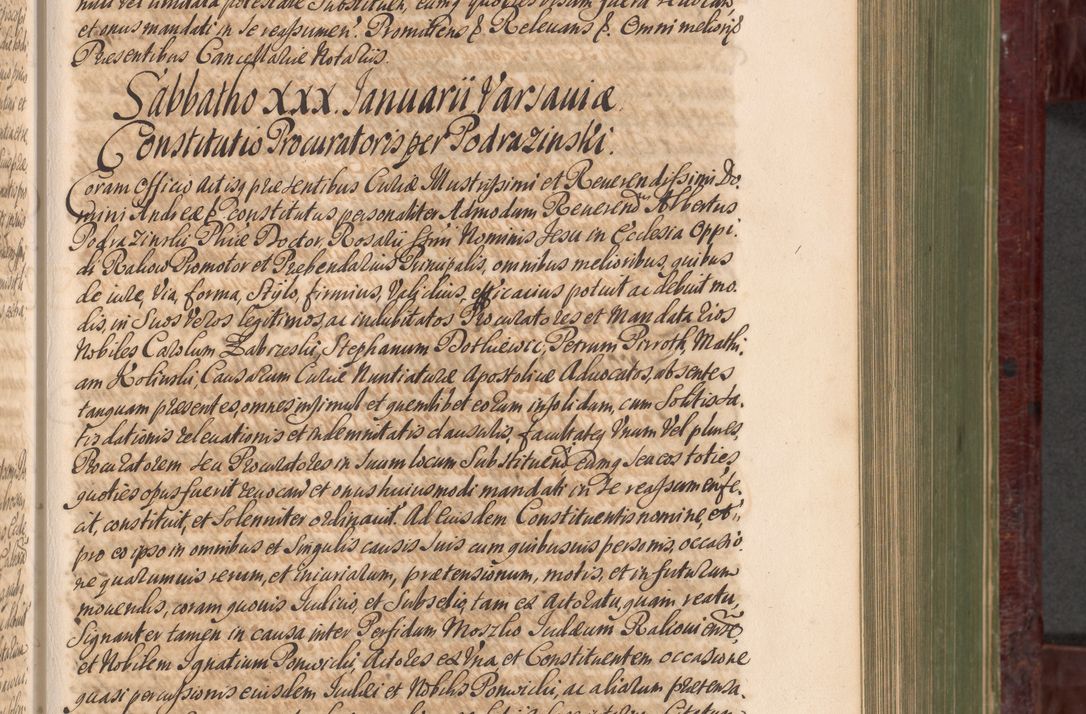 et onus mandati in se reassumen. Promittens &. Relevans &. Omni meliori &
Præsentibus Cancellariæ Notariis.
Sabbatho XXX. Ianuarii Varsaviæ.
Constitutio Procuratoris per Podrazinski.
Coram Officio Actisq præsentibus Curiæ Illustrissimi et Reverendissimi Do-
mini Andreæ &. constitutus personaliter Admodum Reverend Albertus
Podrazinski Phiæ Doctor, Rosarii Ssmi Nominis Jesu in Ecclesia Oppi-
di Rakow Promotor et Præbendarius Principalis, omnibus melioribus, quibus
de iure, via, forma, stylo, firmius, validius, efficacius potuit ac debuit mo-
dis, in suos veros legitimos, ac indubitatos Procuratores et Mandatarios
Nobiles Carolum Zabrzeski, Stephanum Botkiewic, Petrum Pirroth, Mathi-
am Kolinski, Causarum Curiæ Nuntiaturæ Apostolicæ Advocatos, absentes
tanquam præsentes, omnes insimul et quemlibet eorum insolidum, cum solitis sa-
tisdationis relevationis et indemnitatis clausulis, facultateq unum vel plures,
Procuratorem seu Procuratores in suum locum substituend eumq seu eos toties
quoties opus fuerit revocand et onus huiusmodi mandati in se reassumen fe-
cit, constituit, et solenniter ordinavit. Ad eiusdem Constituentis nomine, et
pro eo ipso in omnibus et singulis causis suis cum quibusvis personis, occasio-
ne quarumvis rerum, et iniuriarum, prætensionum, motis, et in futurum
movendis, coram quovis Iudicio, et Subselio, tam ex Actoratu, quam reatu,
Signanter tamen in causa inter Perfidum Moszko Iudæum Rakoviens
et Nobilem Ignatium Ponwicki, Actores ex una, et Constituentem occasione
quasi percussionis eiusdem Iudæi et Nobilis Ponwicki, ac aliarum prætensi-